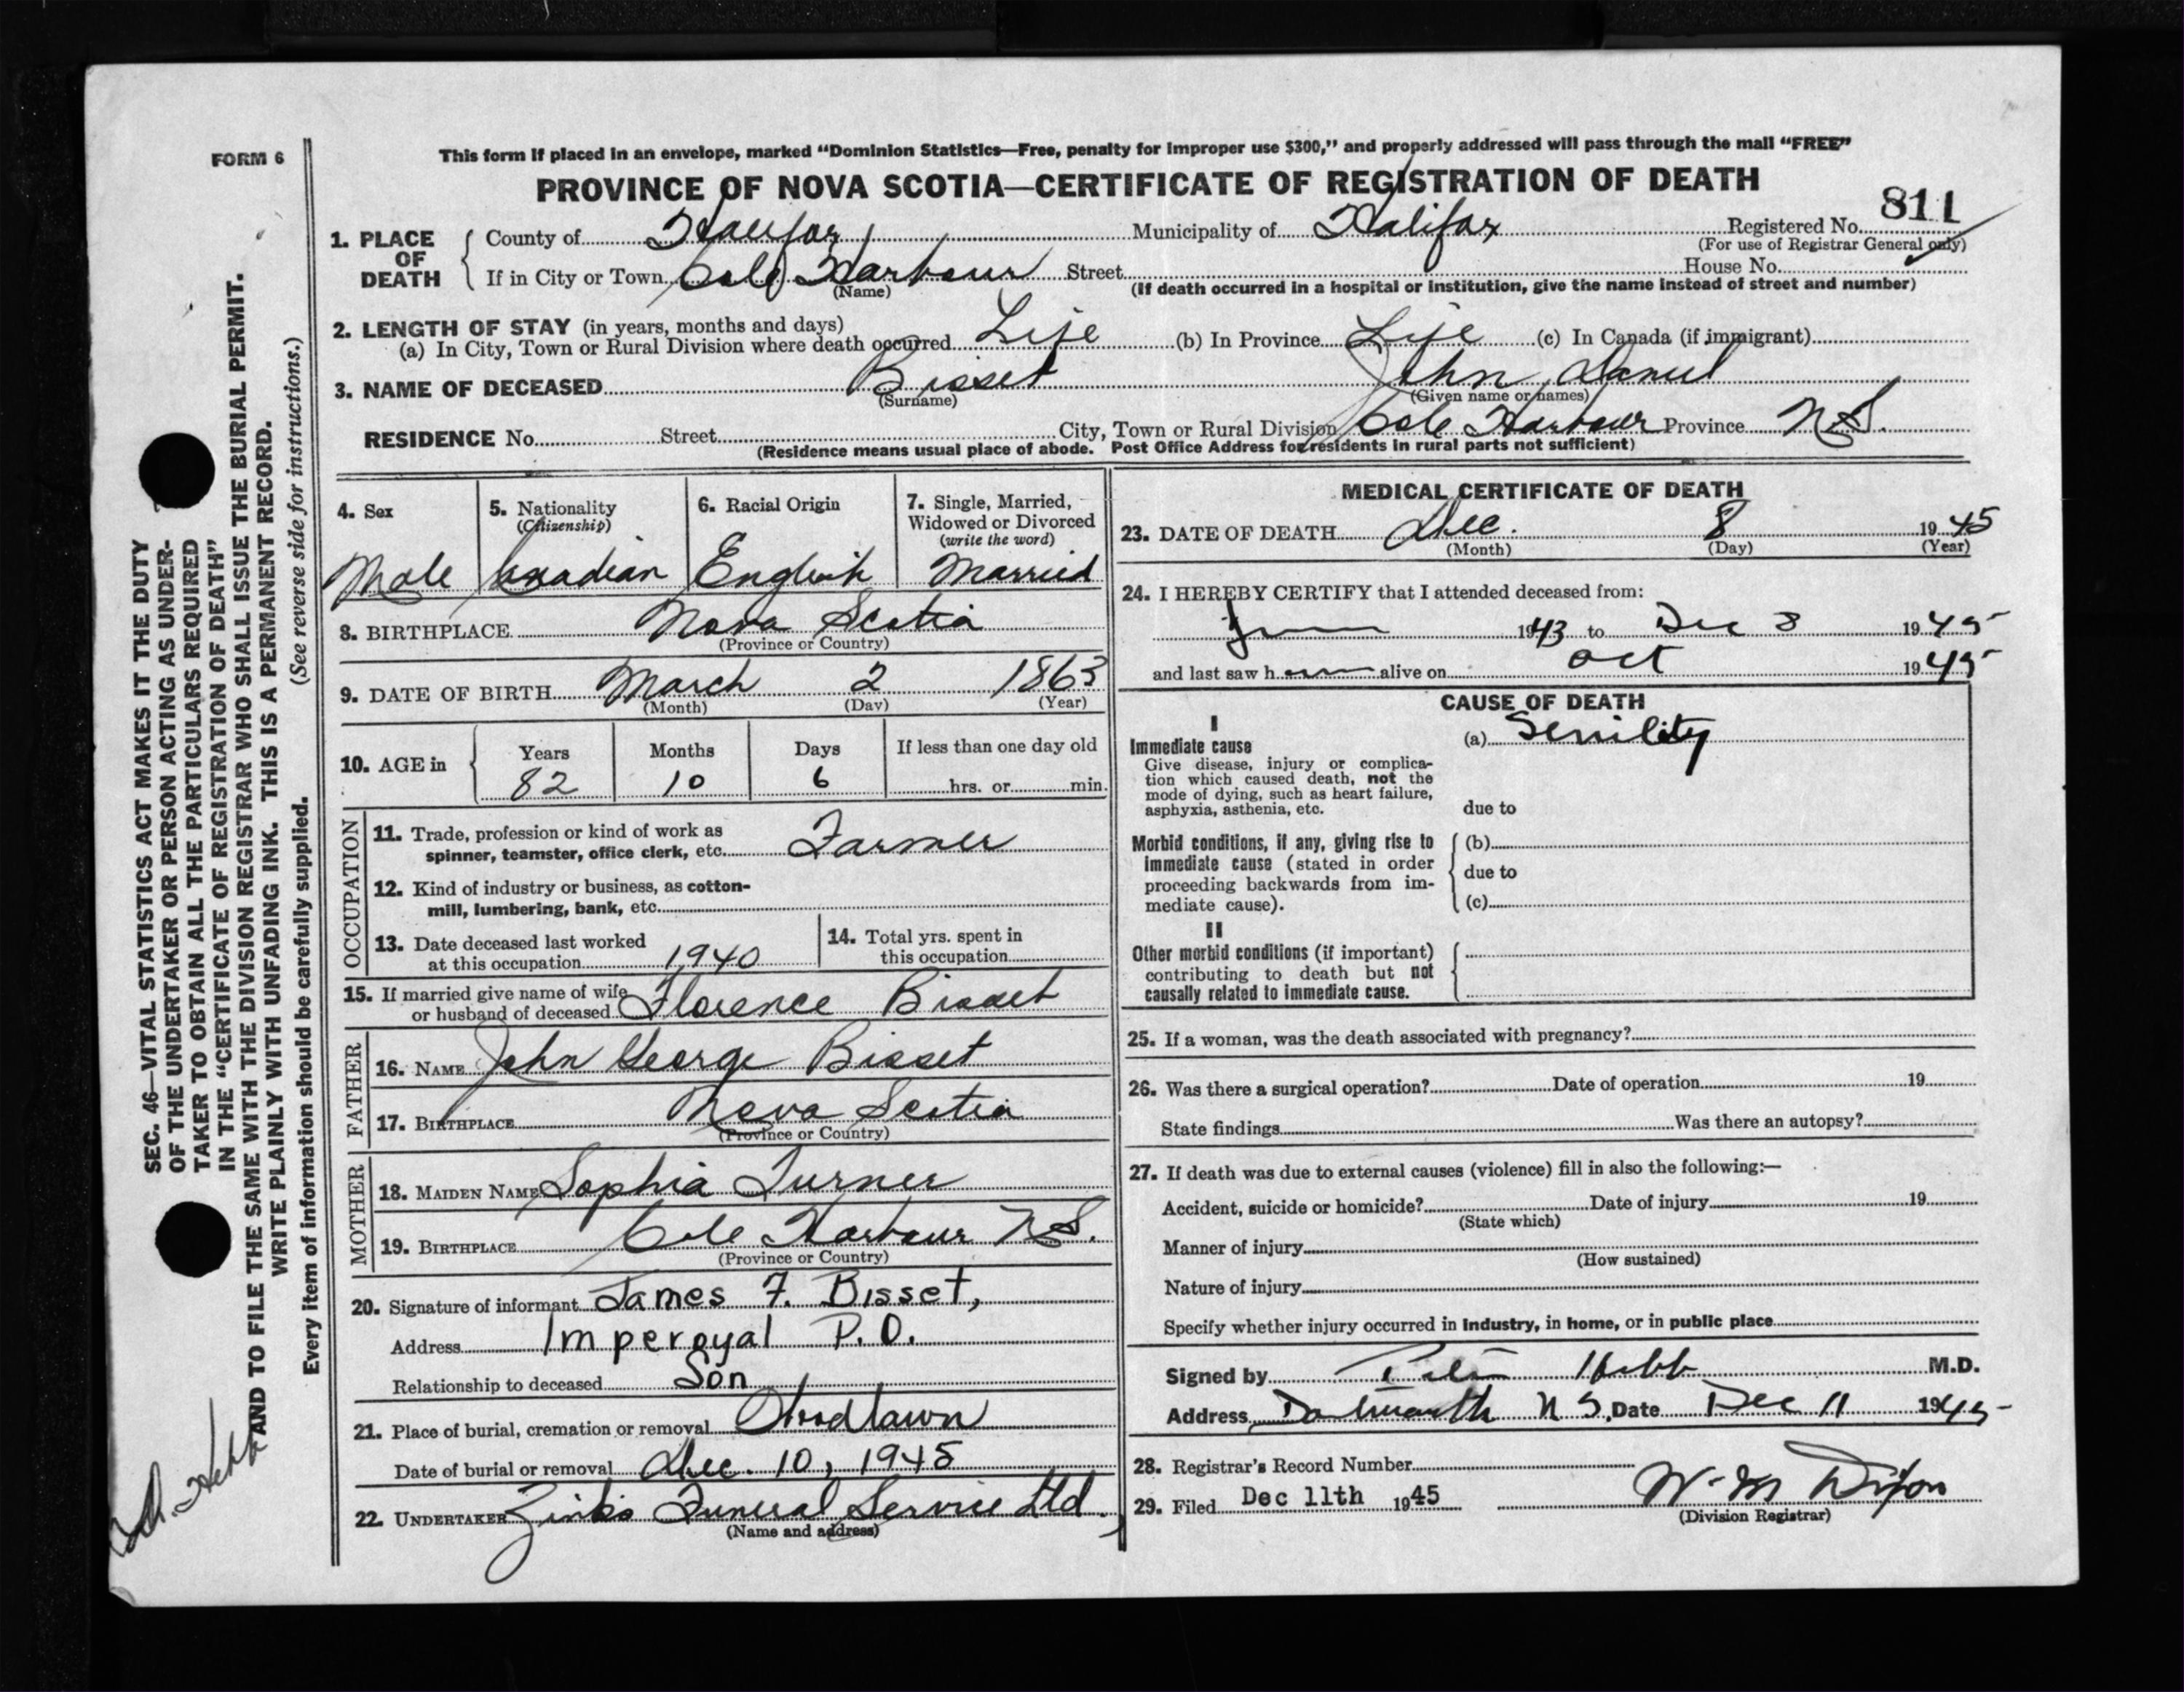 FORM 6
This form if placed in an envelope, marked “Dominion Statistics—Free, penalty for improper use $300,” and properly addressed will pass through the mail “FREE”
PROVINCE OF NOVA SCOTIA—CERTIFICATE OF REGISTRATION OF DEATH
811
1. PLACE OF DEATH { County of Halifax Municipality of Halifax Registered No.
(For use of Registrar General only)
If in City or Town Cole Harbour Street House No.
(Name) (If death occurred in a hospital or institution, give the name instead of street and number)
2. LENGTH OF STAY (in years, months and days)
(a) In City, Town or Rural Division where death occurred Life (b) In Province Life (c) In Canada (if immigrant)
3. NAME OF DECEASED Bisset John Daniel
(Surname) (Given name or names)
RESIDENCE No. Street City, Town or Rural Division Cole Harbour Province N.S.
(Residence means usual place of abode. Post Office Address for residents in rural parts not sufficient)
4. Sex
Male
5. Nationality
(Citizenship)
Canadian
6. Racial Origin
English
7. Single, Married,
Widowed or Divorced
(write the word)
Married
8. BIRTHPLACE Nova Scotia
(Province or Country)
9. DATE OF BIRTH March 2 1863
(Month) (Day) (Year)
10. AGE in { Years Months Days If less than one day old
82 10 6 hrs. or min.
OCCUPATION
11. Trade, profession or kind of work as
spinner, teamster, office clerk, etc. Farmer
12. Kind of industry or business, as cotton-
mill, lumbering, bank, etc.
13. Date deceased last worked
at this occupation 1940
14. Total yrs. spent in
this occupation
15. If married give name of wife
or husband of deceased Florence Bisset
FATHER
16. NAME John George Bisset
17. BIRTHPLACE Nova Scotia
(Province or Country)
MOTHER
18. MAIDEN NAME Sophia Turner
19. BIRTHPLACE Cole Harbour N.S.
(Province or Country)
20. Signature of informant James F. Bisset,
Address Imperoyal P.O.
Relationship to deceased Son
21. Place of burial, cremation or removal Woodlawn
Date of burial or removal Dec. 10, 1945
22. UNDERTAKER Zink's Funeral Service Ltd.
(Name and address)
MEDICAL CERTIFICATE OF DEATH
23. DATE OF DEATH Dec. 8 1945
(Month) (Day) (Year)
24. I HEREBY CERTIFY that I attended deceased from:
1943 to Dec 8 1945
and last saw h alive on Oct 1945
CAUSE OF DEATH
I
Immediate cause
Give disease, injury or complica-
tion which caused death, not the
mode of dying, such as heart failure,
asphyxia, asthenia, etc.
(a) Senility
due to
Morbid conditions, if any, giving rise to
immediate cause (stated in order
proceeding backwards from im-
mediate cause).
(b)
due to
(c)
II
Other morbid conditions (if important)
contributing to death but not
causally related to immediate cause.
25. If a woman, was the death associated with pregnancy?
26. Was there a surgical operation? Date of operation 19
State findings Was there an autopsy?
27. If death was due to external causes (violence) fill in also the following:—
Accident, suicide or homicide? Date of injury 19
(State which)
Manner of injury
(How sustained)
Nature of injury
Specify whether injury occurred in industry, in home, or in public place
Signed by Hebb M.D.
Address Dartmouth N S. Date Dec 11 1945
28. Registrar's Record Number
29. Filed Dec 11th 1945 W. M Dixon
(Division Registrar)
SEC. 46—VITAL STATISTICS ACT MAKES IT THE DUTY
OF THE UNDERTAKER OR PERSON ACTING AS UNDER-
TAKER TO OBTAIN ALL THE PARTICULARS REQUIRED
IN THE “CERTIFICATE OF REGISTRATION OF DEATH”
AND TO FILE THE SAME WITH THE DIVISION REGISTRAR WHO SHALL ISSUE THE BURIAL PERMIT.
WRITE PLAINLY WITH UNFADING INK. THIS IS A PERMANENT RECORD.
Every item of information should be carefully supplied. (See reverse side for instructions.)
Hebb